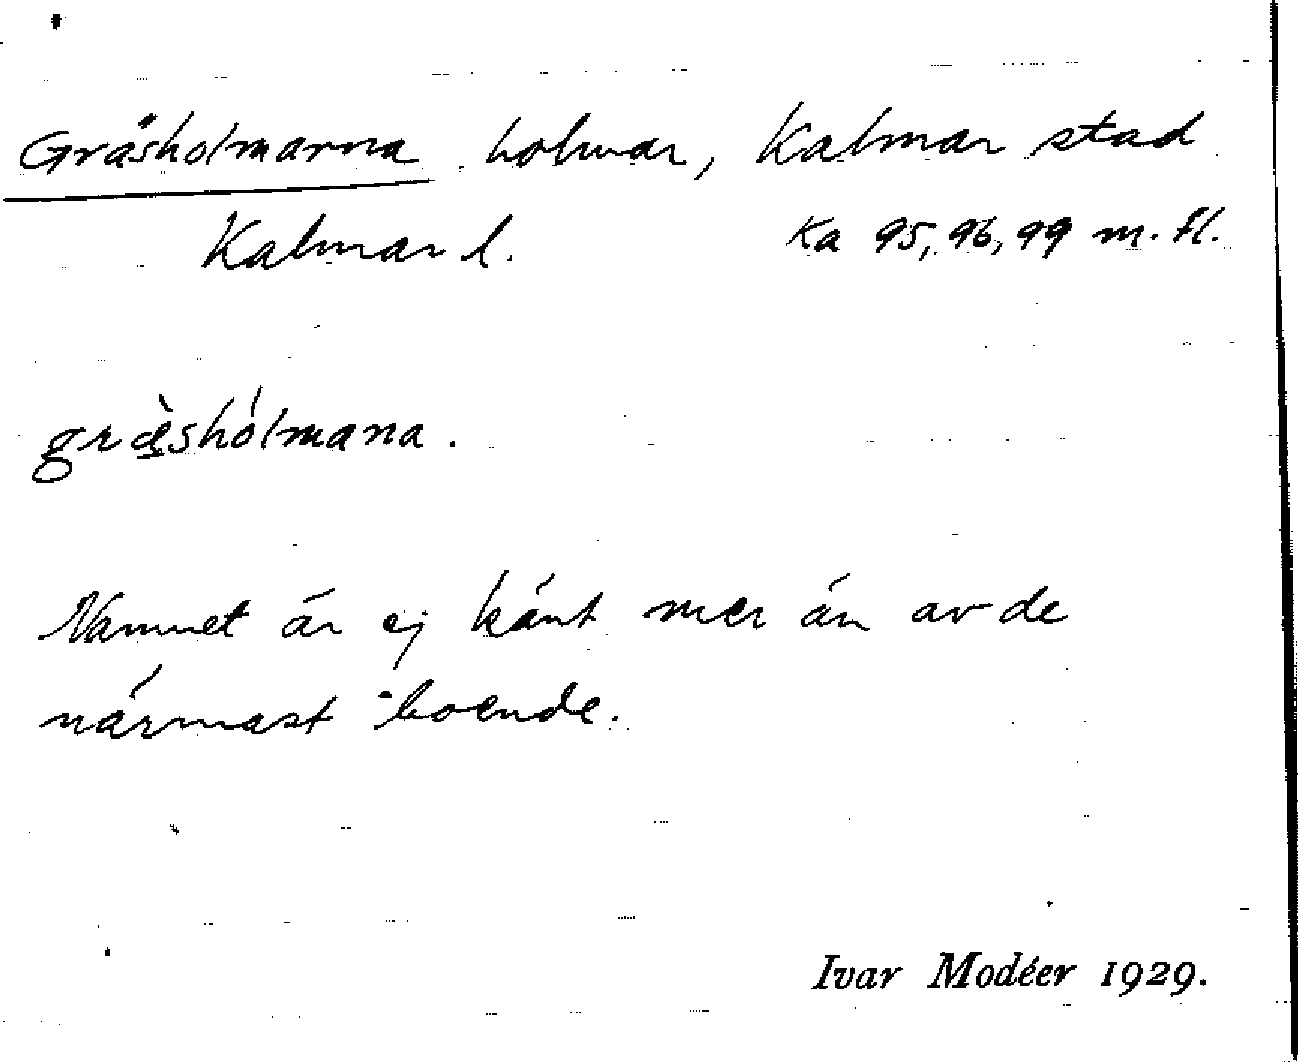 Gräsholmarna holmar, Kalmar stad
Kalmar l. Ka 95, 96, 99 m. fl.
græ̀shólmana.
Namnet är ej känt mer än av de
närmast boende.
Ivar Modéer 1929.